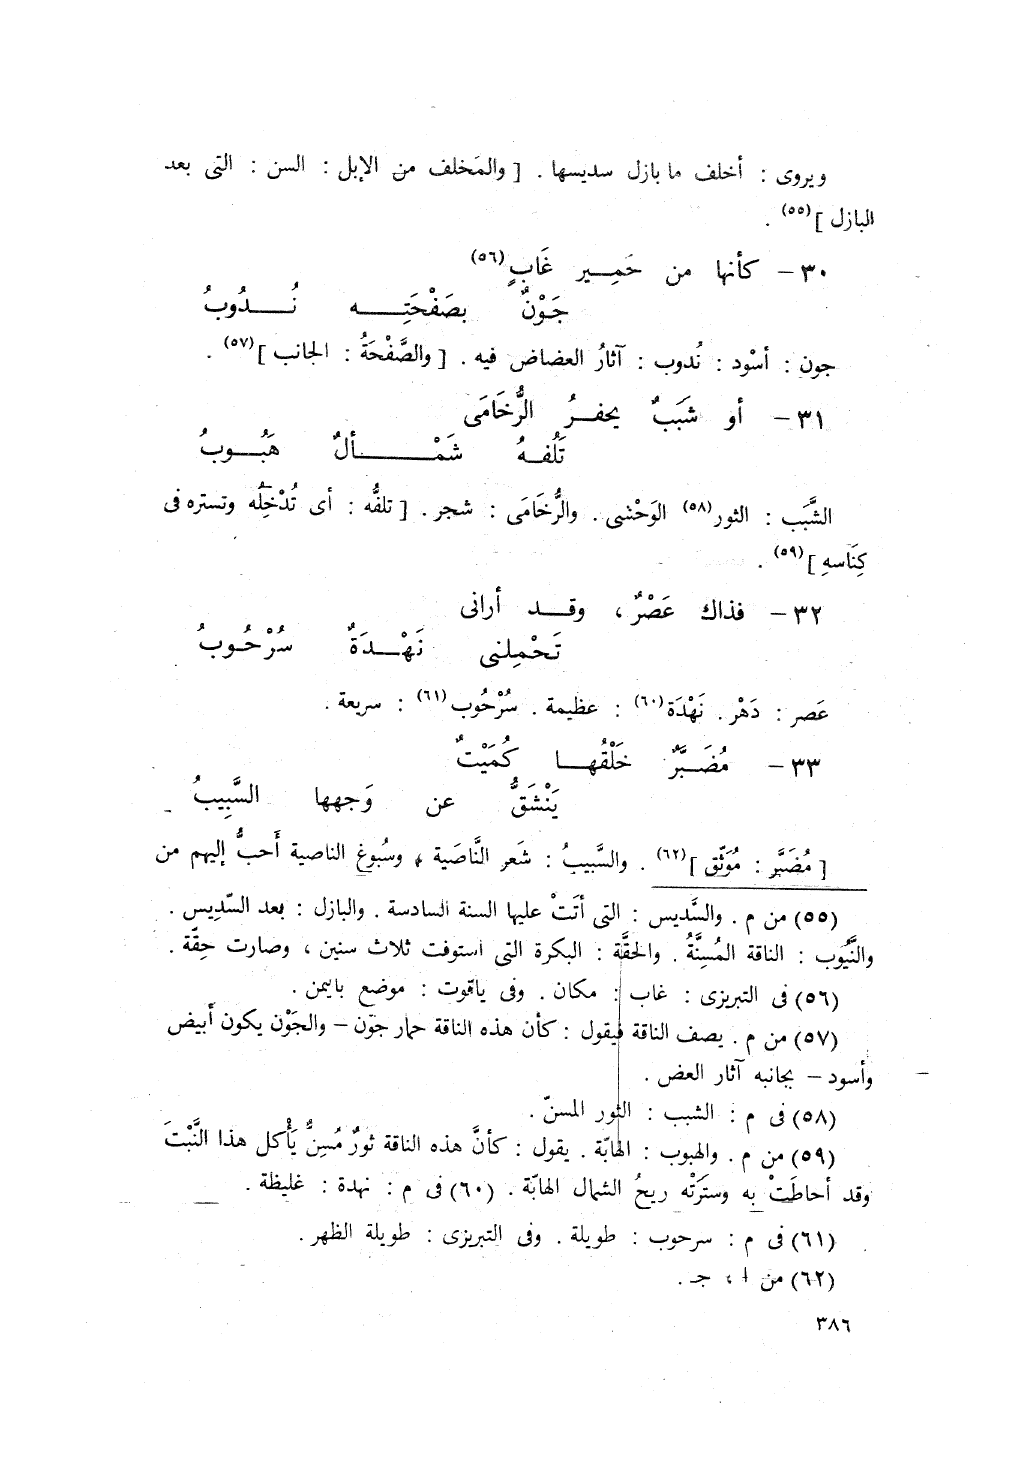 ويروى : أخلف ما بازل سديسها . [ والمَخلف من الإبل : السن : التى بعد
البازل ](٥٥) .
٣٠ – كأنها من حَمِير غَابٍ(٥٦)
جَوْنٌ بصَفْحَتِه نُدُوبُ
جون : أسْود : نُدوب : آثارُ العضاض فيه . [ والصَّفْحَةُ : الجانب ](٥٧) .
٣١ – أو شَبَبٌ يحفرُ الرُّخَامَى
تَلُفهُ شَمْألٌ هَبُوبُ
الشَّبَب : الثور(٥٨) الوَحْشى . والرُّخَامَى : شجر . [ تلفُّه : أى تُدْخِلُه وتستره فى
كِنَاسهِ ](٥٩) .
٣٢ – فذاك عَصْرٌ ، وقد أرانى
تَحْمِلنى نَهْدَةٌ سُرْحُوبُ
عَصر : دَهْر . نَهْدَة(٦٠) : عظيمة . سُرْحُوب(٦١) : سريعة .
٣٣ – مُضَبَّرٌ خَلْقُها كُمَيْتٌ
يَنْشَقُّ عن وَجهها السَّبِيبُ
[ مُضَبَّر : مُوَثّق ](٦٢) . والسَّبيبُ : شَعر النَّاصَية ، وسُبوغ الناصية أَحبُّ إليهم من
(٥٥) من م . والسَّديس : التى أتَتْ عليها السنة السادسة . والبازل : بعد السّدِيس .
والنَّيُوب : الناقة المُسِنَّةُ . والحقَّة : البكرة التى استوفت ثلاث سنين ، وصارت حِقّة .
(٥٦) فى التبريزى : غاب : مكان . وفى ياقوت : موضع باليمن .
(٥٧) من م . يصف الناقة فيقول : كأن هذه الناقة حمار جوْن – والجَوْن يكون أبيض
وأسود – بجانبه آثار العض .
(٥٨) فى م : الشبب : الثور المسنّ .
(٥٩) من م . والهبوب : الهابّة . يقول : كأنَّ هذه الناقة ثورٌ مُسِنٌّ يَأْكل هذا النَّبْتَ
وقد أحاطَتْ به وستَرَتْه ريحُ الشمال الهابّة . (٦٠) فى م : نهدة : غليظة .
(٦١) فى م : سرحوب : طويلة . وفى التبريزى : طويلة الظهر .
(٦٢) من ا ، جـ .
٣٨٦